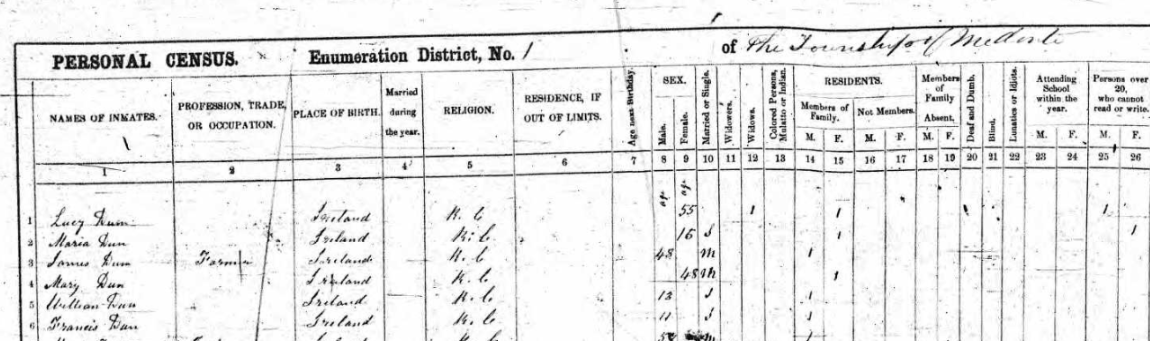 PERSONAL CENSUS. Enumeration District, No. 1 of The Township of Medonte
NAMES OF INMATES. PROFESSION, TRADE, OR OCCUPATION. PLACE OF BIRTH. Married during the year. RELIGION. RESIDENCE, IF OUT OF LIMITS. Age next Birthday. SEX. Male. Female. Married or Single. Widowers. Widows. Colored Persons, Mulatto or Indian. RESIDENTS. Members of Family. M. F. Not Members. M. F. Members of Family Absent. M. F. Deaf and Dumb. Blind. Lunatics or Idiots. Attending School within the year. M. F. Persons over 20, who cannot read or write. M. F.
1 2 3 4 5 6 7 8 9 10 11 12 13 14 15 16 17 18 19 20 21 22 23 24 25 26
age age
1 Lucy Dun Ireland R. C 55 1 1 1
2 Maria Dun Ireland R. C 16 S 1 1
3 James Dun Farmer Ireland R. C 48 M 1
4 Mary Dun Ireland R. C 48 M 1
5 William Dun Ireland R. C 13 S 1
6 Francis Dun Ireland R. C 11 S 1